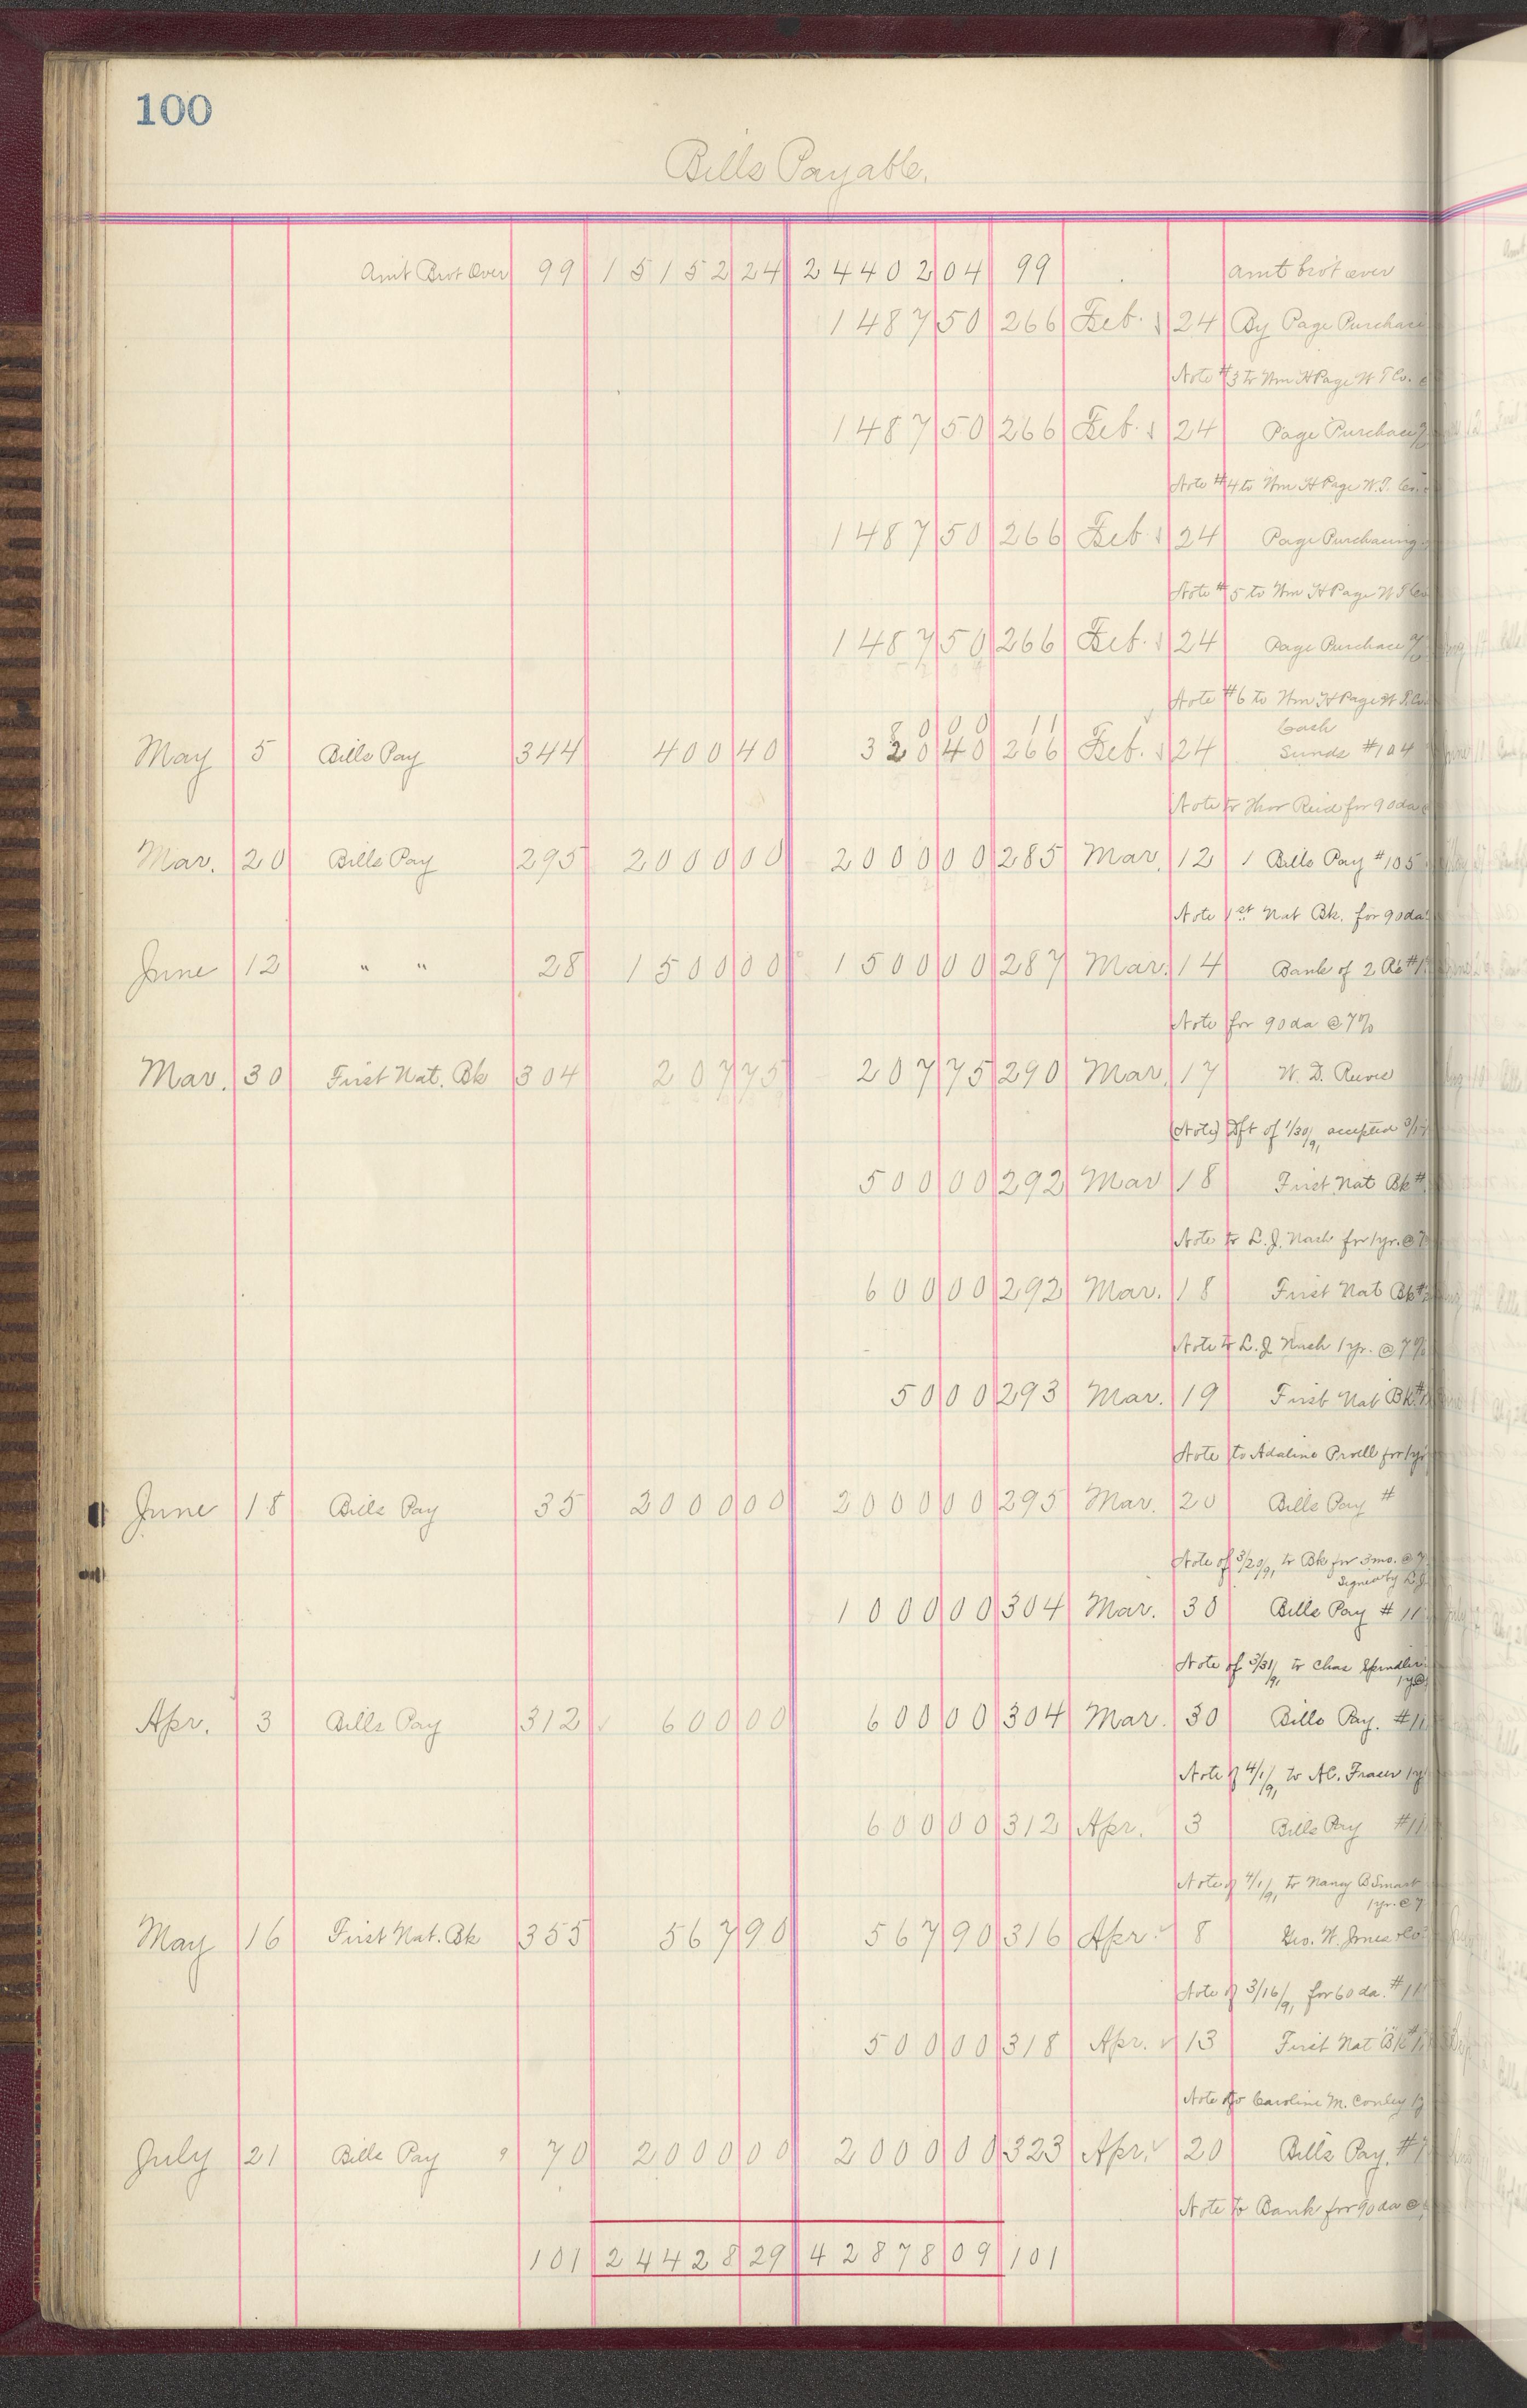 100
Bills Payable.
Amt Brot Over 99 15152 24 24402 04 99 amt brot over
1487 50 266 Feb. 24 By Page Purchace
Note #3 to Wm H Page W T Co.
1487 50 266 Feb. 24 Page Purchace
Note #4 to Wm H Page W.T. Co.
1487 50 266 Feb 24 Page Purchacing
Note #5 to Wm H Page W T Co
1487 50 266 Feb. 24 Page Purchace
Note #6 to Wm H Page W T. Co.
8 0 0 0 11 Cash
May 5 Bills Pay 344 400 40 320 40 266 Feb. 24 Sunds #104
Note to Thor Reid for 90 da
Mar. 20 Bills Pay 295 2000 00 2000 00 285 Mar. 12 1 Bills Pay #105
Note 1st Nat Bk. for 90 da.
June 12 " " 28 1500 00 1500 00 287 Mar. 14 Bank of 2 Rs #1
Note for 90 da @ 7%
Mar. 30 First Nat. Bk 304 207 75 207 75 290 Mar. 17 W. D. Reeves
(Note) Dft of 1/30/91 accepted 3/17
500 00 292 Mar 18 First Nat Bk #
Note to L. J. Nash for 1 yr. @ 7
600 00 292 Mar. 18 First Nat Bk #
Note to L. J. Nash 1 yr. @ 7%
50 00 293 Mar. 19 First Nat Bk #
Note to Adaline Proell for 1 yr
June 18 Bills Pay 35 2000 00 2000 00 295 Mar. 20 Bills Pay #
Note of 3/20/91 to Bk for 3 mo. @ 7
Signed by L. J.
1000 00 304 Mar. 30 Bills Pay # 11
Note of 3/31/91 to Chas Spindler
1 y @
Apr. 3 Bills Pay 312 600 00 600 00 304 Mar. 30 Bills Pay. #11
Note of 4/1/91 to Al. Fraser 1 y
600 00 312 Apr. 3 Bills Pay #11
Note of 4/1/91 to Nancy B Smart
1 yr. @ 7
May 16 First Nat. Bk 355 567 90 567 90 316 Apr. 8 Geo. W. Jones & Co
Note of 3/16/91 for 60 da. #11
500 00 318 Apr. 13 First Nat Bk #
Note to Caroline M. Conley 1 y
July 21 Bills Pay 70 2000 00 2000 00 323 Apr. 20 Bills Pay. #
Note to Bank for 90 da @
101 24428 29 42878 09 101